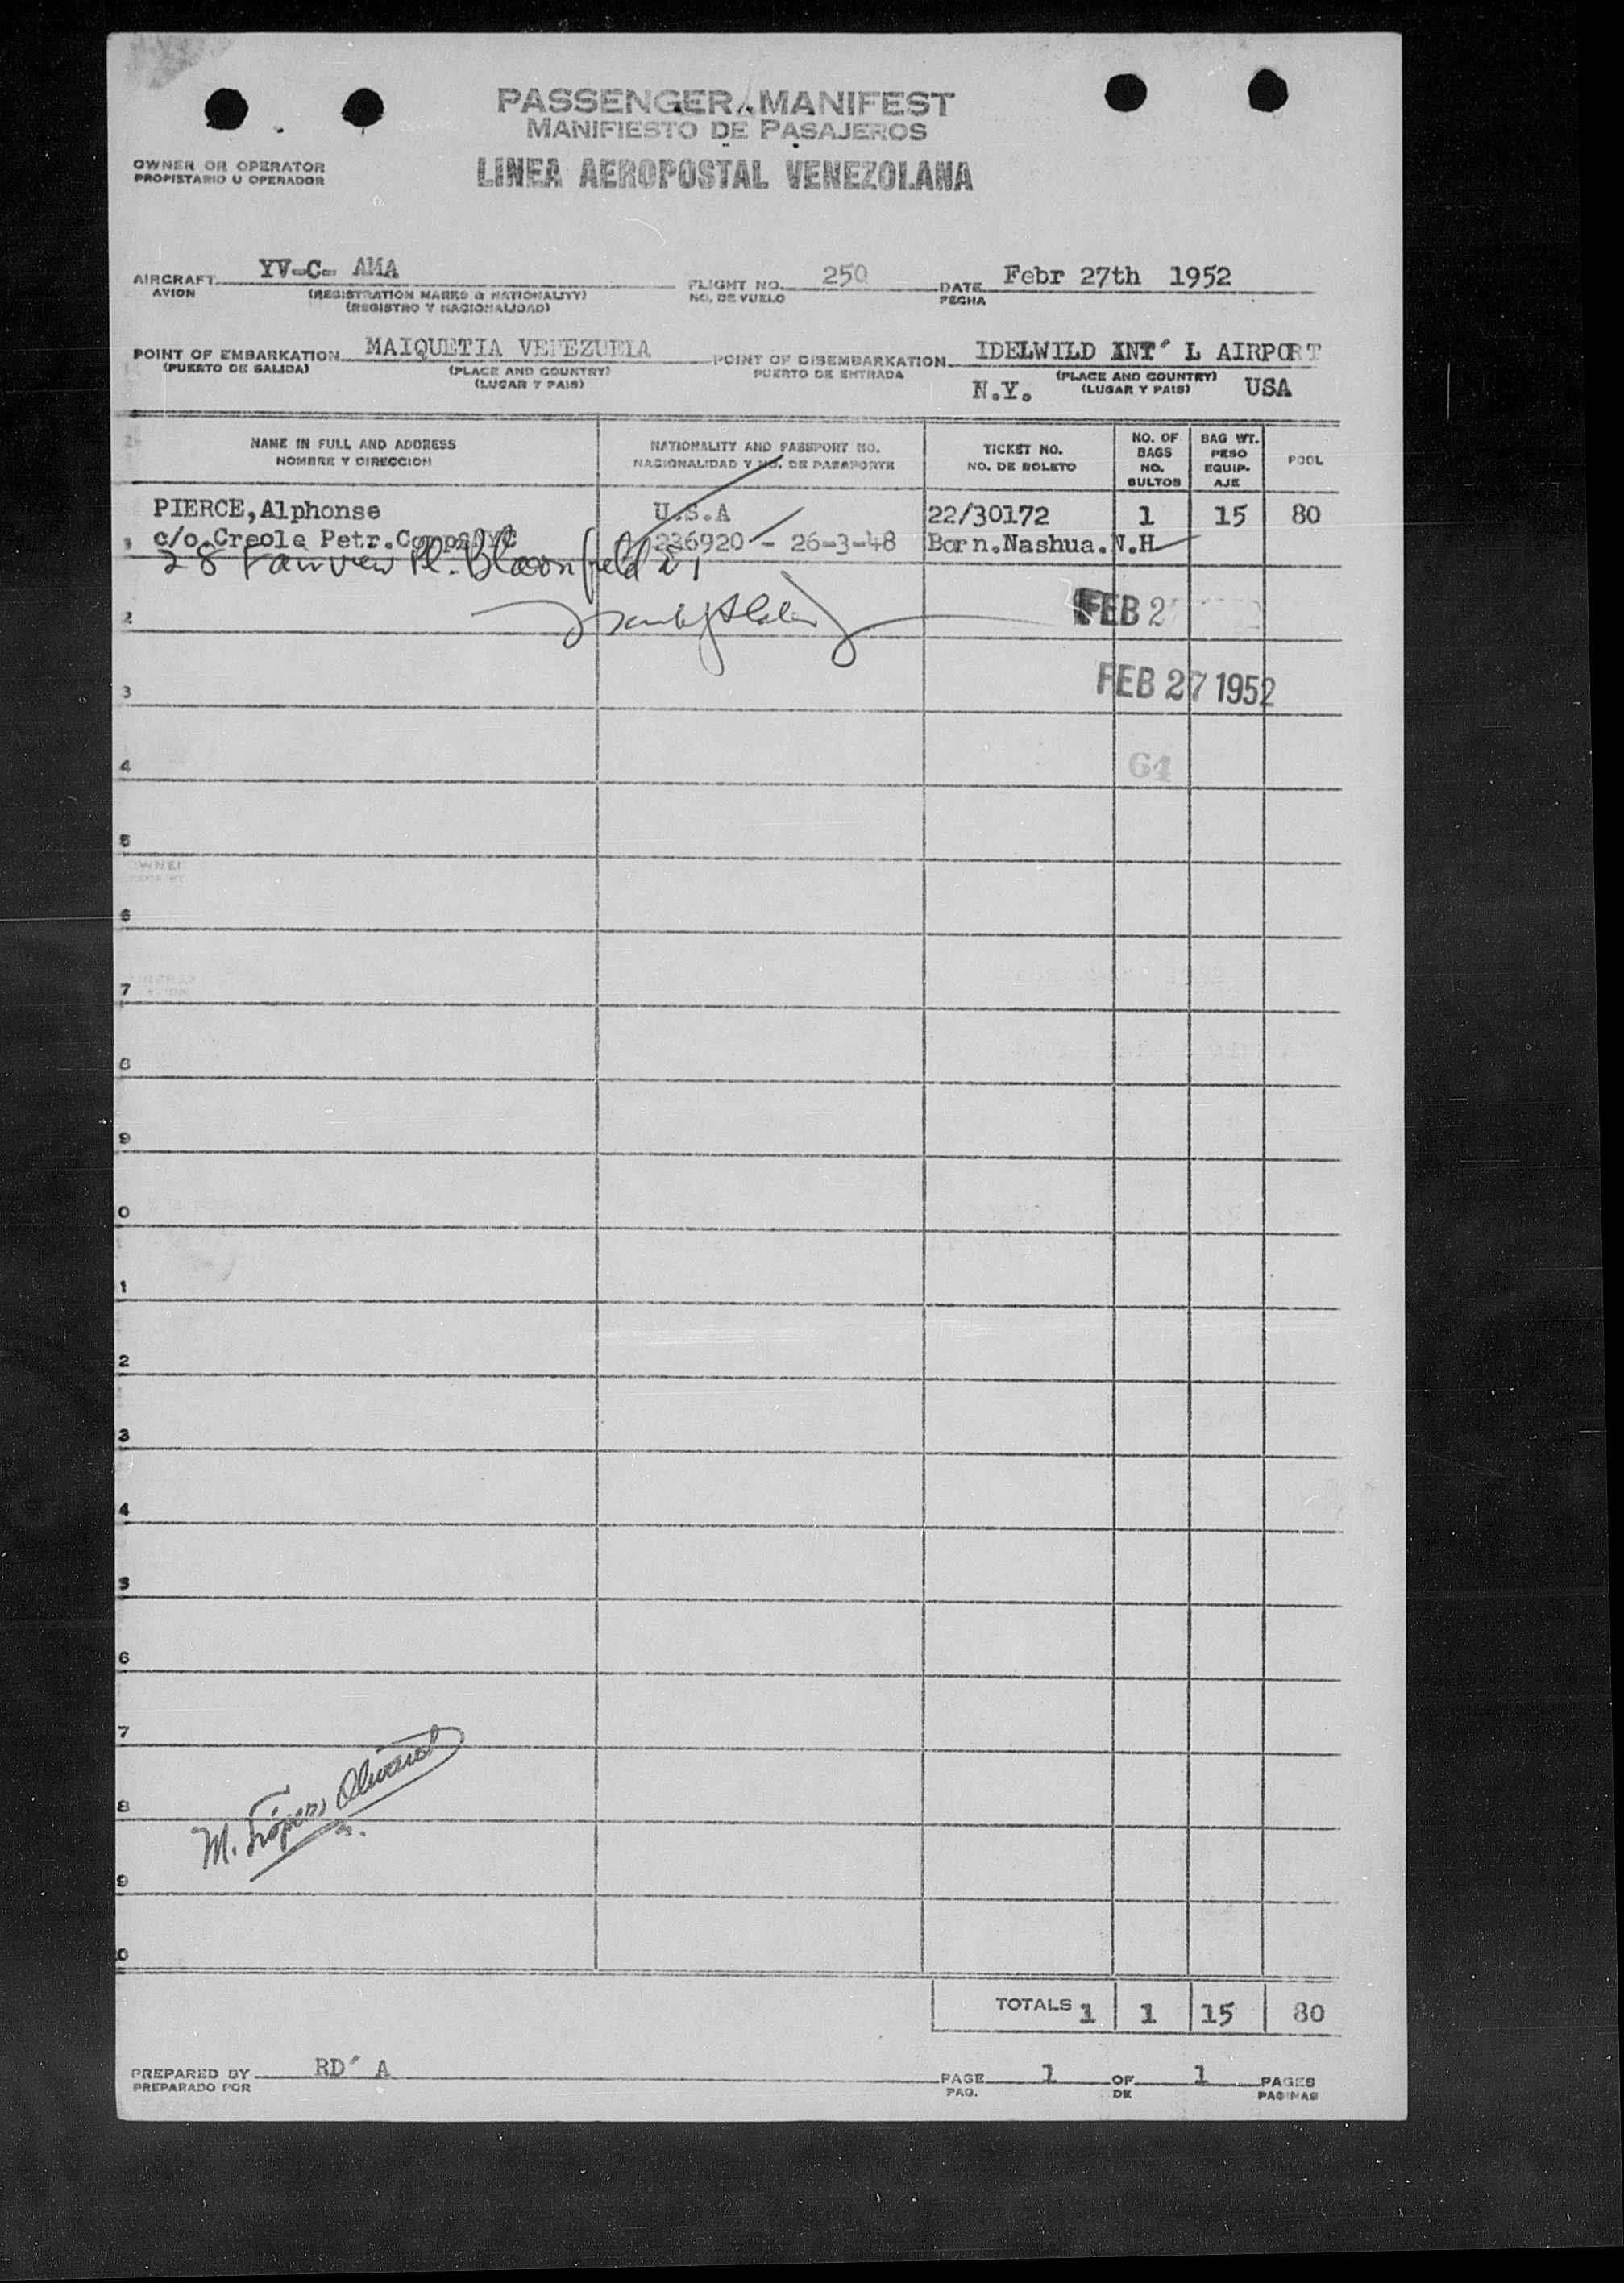 PASSENGER MANIFEST
MANIFIESTO DE PASAJEROS
OWNER OR OPERATOR
PROPIETARIO U OPERADOR
LINEA AEROPOSTAL VENEZOLANA
AIRCRAFT YV-C- AMA FLIGHT NO. 250 DATE Febr 27th 1952
AVION (REGISTRATION MARKS & NATIONALITY) NO. DE VUELO FECHA
(REGISTRO Y NACIONALIDAD)
POINT OF EMBARKATION MAIQUETIA VENEZUELA POINT OF DISEMBARKATION IDELWILD INT´ L AIRPORT
(PUERTO DE SALIDA) (PLACE AND COUNTRY) PUERTO DE ENTRADA (PLACE AND COUNTRY)
(LUGAR Y PAIS) N.Y. (LUGAR Y PAIS) USA
NAME IN FULL AND ADDRESS NATIONALITY AND PASSPORT NO. TICKET NO. NO. OF BAGS BAG WT. POOL
NOMBRE Y DIRECCION NACIONALIDAD Y NO. DE PASAPORTE NO. DE BOLETO NO. BULTOS PESO EQUIP-AJE
PIERCE,Alphonse U.S.A 22/30172 1 15 80
c/o.Creole Petr.Corp. NYC 236920 - 26-3-48 Born.Nashua.N.H
28 Fairview Pl. Bloomfield
2 FEB 2
3 FEB 27 1952
4 64
5
OWNER
6
7
8
9
0
1
2
3
4
5
6
7
8
M. López Olivares
9
0
TOTALS 1 1 15 80
PREPARED BY RD´ A PAGE 1 OF 1 PAGES
PREPARADO POR PAG. DE PAGINAS